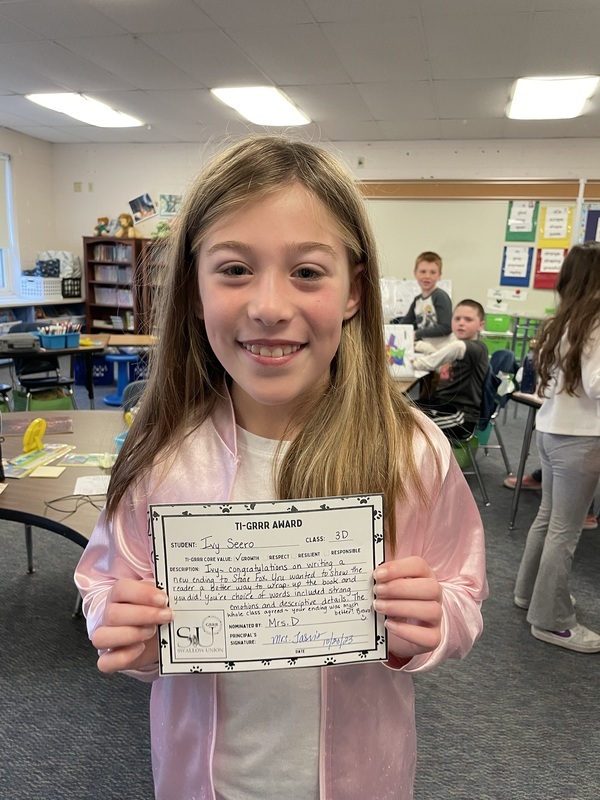 TI-GRRR AWARD
STUDENT: Ivy Seero CLASS: 3D
TI-GRRR CORE VALUE: ✓GROWTH RESPECT RESILIENT RESPONSIBLE
DESCRIPTION: Ivy- congratulations on writing a
new ending to Stone Fox. You wanted to show the
reader a better way to wrap-up the book and
you did! You're choice of words included strong
emotions and descriptive details. The
whole class agreed- your ending was much
better! Bravo
NOMINATED BY: Mrs. D
PRINCIPAL'S
SIGNATURE: Mrs. Jarvis 10/26/23
DATE
GRRR
SU
SWALLOW UNION